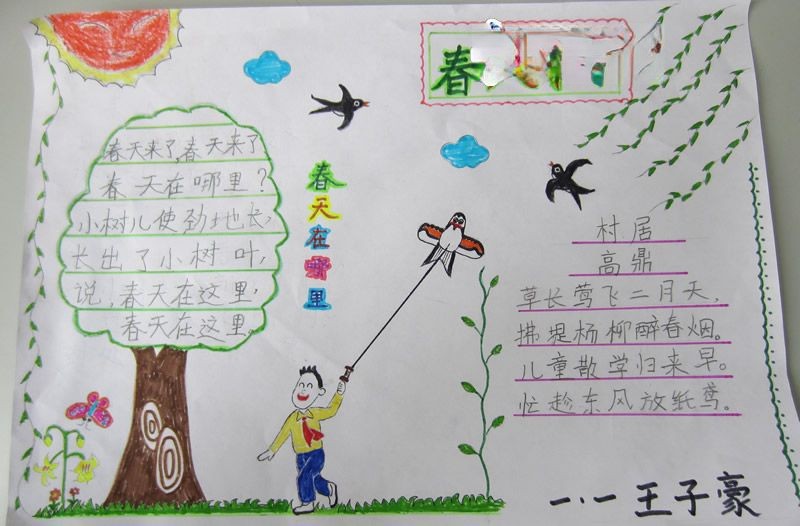 春
春天来了,春天来了
春天在哪里?
小树儿使劲地长,
长出了小树叶,
说,春天在这里,
春天在这里。
春天在哪里
村居
高鼎
草长莺飞二月天,
拂堤杨柳醉春烟。
儿童散学归来早。
忙趁东风放纸鸢。
一.一王子豪